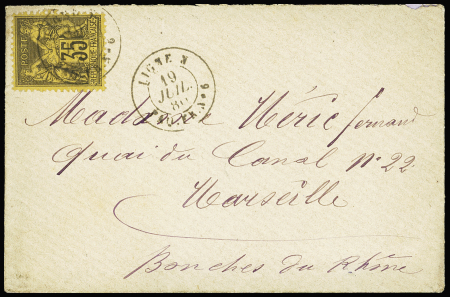 POSTES
35
REPUBLIQUE FRANÇAISE
LIGNE N
19
JUIL.
86
Nº 6
Madame Méric fernand
quai du Canal n° 22
Marseille
Bouches du Rhône